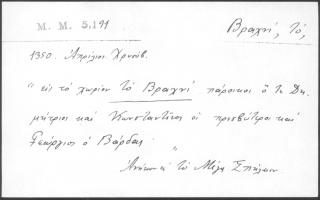 Μ. Μ. 5,191
Βραχνί, τό,
1350. Ἀπρίλιος. Χρυσόβ.
"εἰς τὸ χωρίον τὸ Βραχνί πάροικοι ὅ τε Δη-
μήτριος καὶ Κωνσταντῖνος οἱ πρεσβύτεροι καὶ
Γεώργιος ὁ Βάρδας "
τὸ Μέγα Σπήλαιον